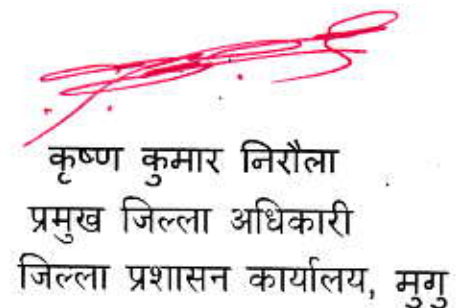 कृष्ण कुमार निरौला
प्रमुख जिल्ला अधिकारी
जिल्ला प्रशासन कार्यालय, मुगु